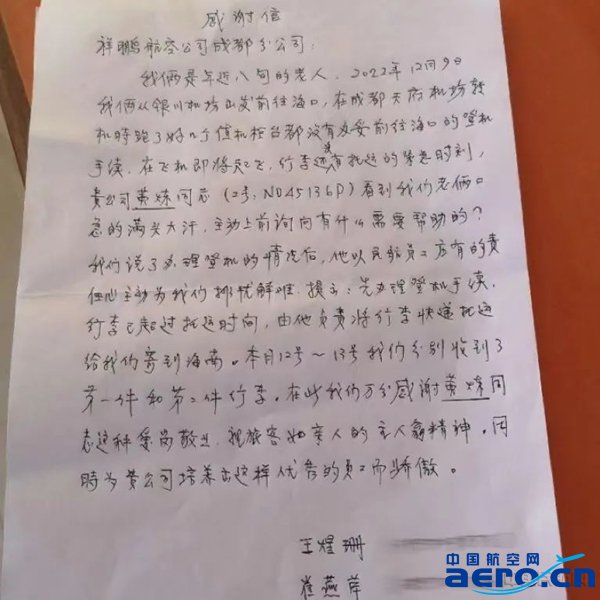 感谢信
祥鹏航空公司成都分公司:
我俩是年近八旬的老人，2022年12月9日
我俩从银川机场出发前往海口，在成都天府机场转
机時跑了好几个值机柜台都没有办妥前往海口的登机
手续，在飞机即将起飞，行李还没有托运的紧急时刻，
贵公司黄炼同志（工号:NO45136P）看到我们老俩口
急的满头大汗，主动上前询问有什么需要帮助的？
我们说了办理登机的情况后，他以民航员工应有的责
任心主动为我们排忧解难，提出：先办理登机手续，
行李已超过托运时间，由他负责将行李快递托运
给我们寄到海南。本月12号～13号我们分别收到了
第一件和第二件行李。在此我们万分感谢黄炼同
志这种爱岗敬业，视旅客如亲人的主人翁精神。同
時为贵公司培养出这样优秀的员工而骄傲。
王煜珊
崔燕萍
中国航空网
aero.cn